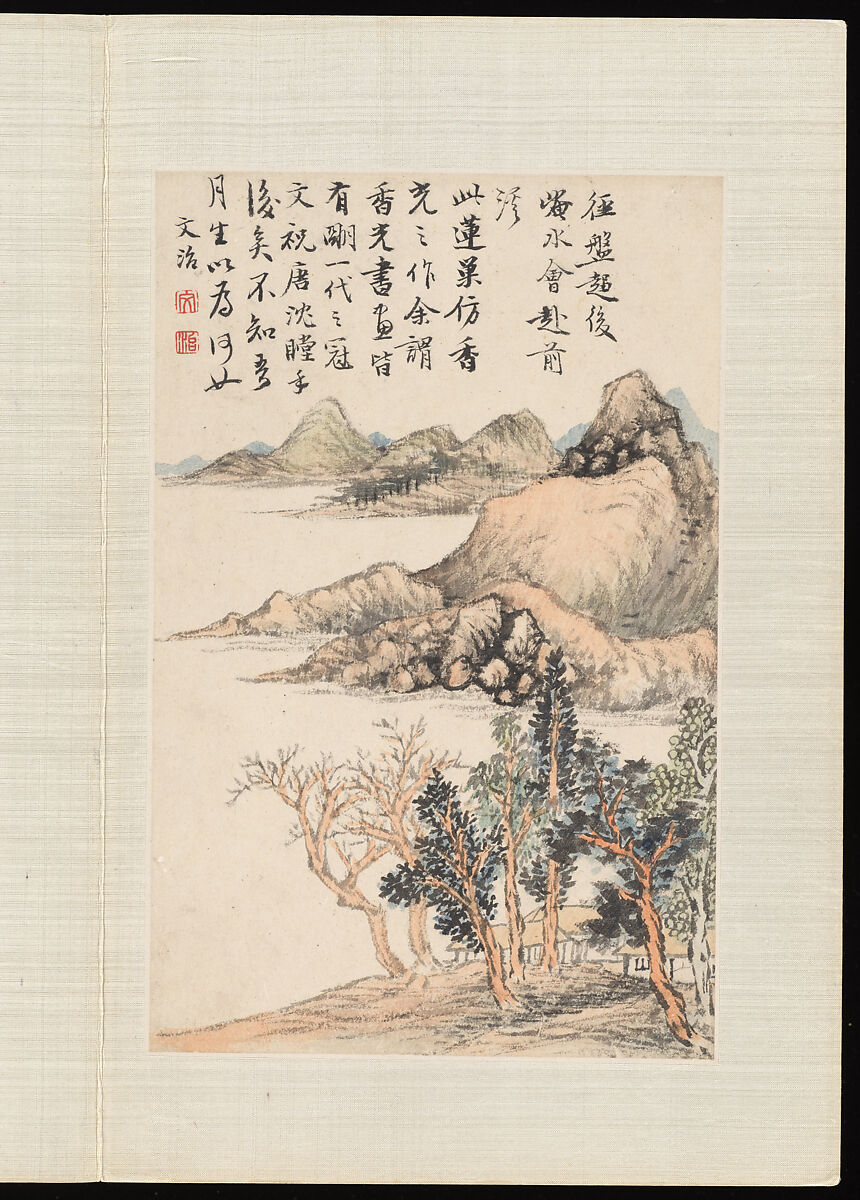 徑盤超後
崦水會赴前
溪
此蓮巢仿香
光之作余謂
香光書畫皆
有朙一代之冠
文祝唐沈瞠乎
後矣不知吾
月生以為何如
文治
文
治